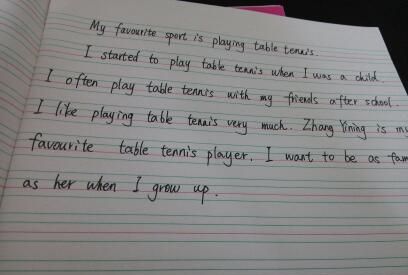 My favourite sport is playing table tennis.
I started to play table tennis when I was a child.
I often play table tennis with my friends after school.
I like playing table tennis very much. Zhang Yining is
favourite table tennis player. I want to be as
as her when I grow up.